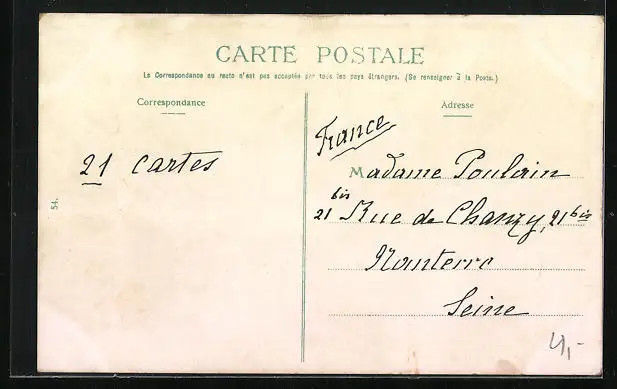 CARTE POSTALE
La Correspondance au recto n'est pas acceptée par tous les pays étrangers. (Se renseigner à la Poste.)
Correspondance
Adresse
France
21 cartes
Madame Poulain
21 bis Rue de Chanzy, 21 bis
Nanterre
Seine
54.
4,-